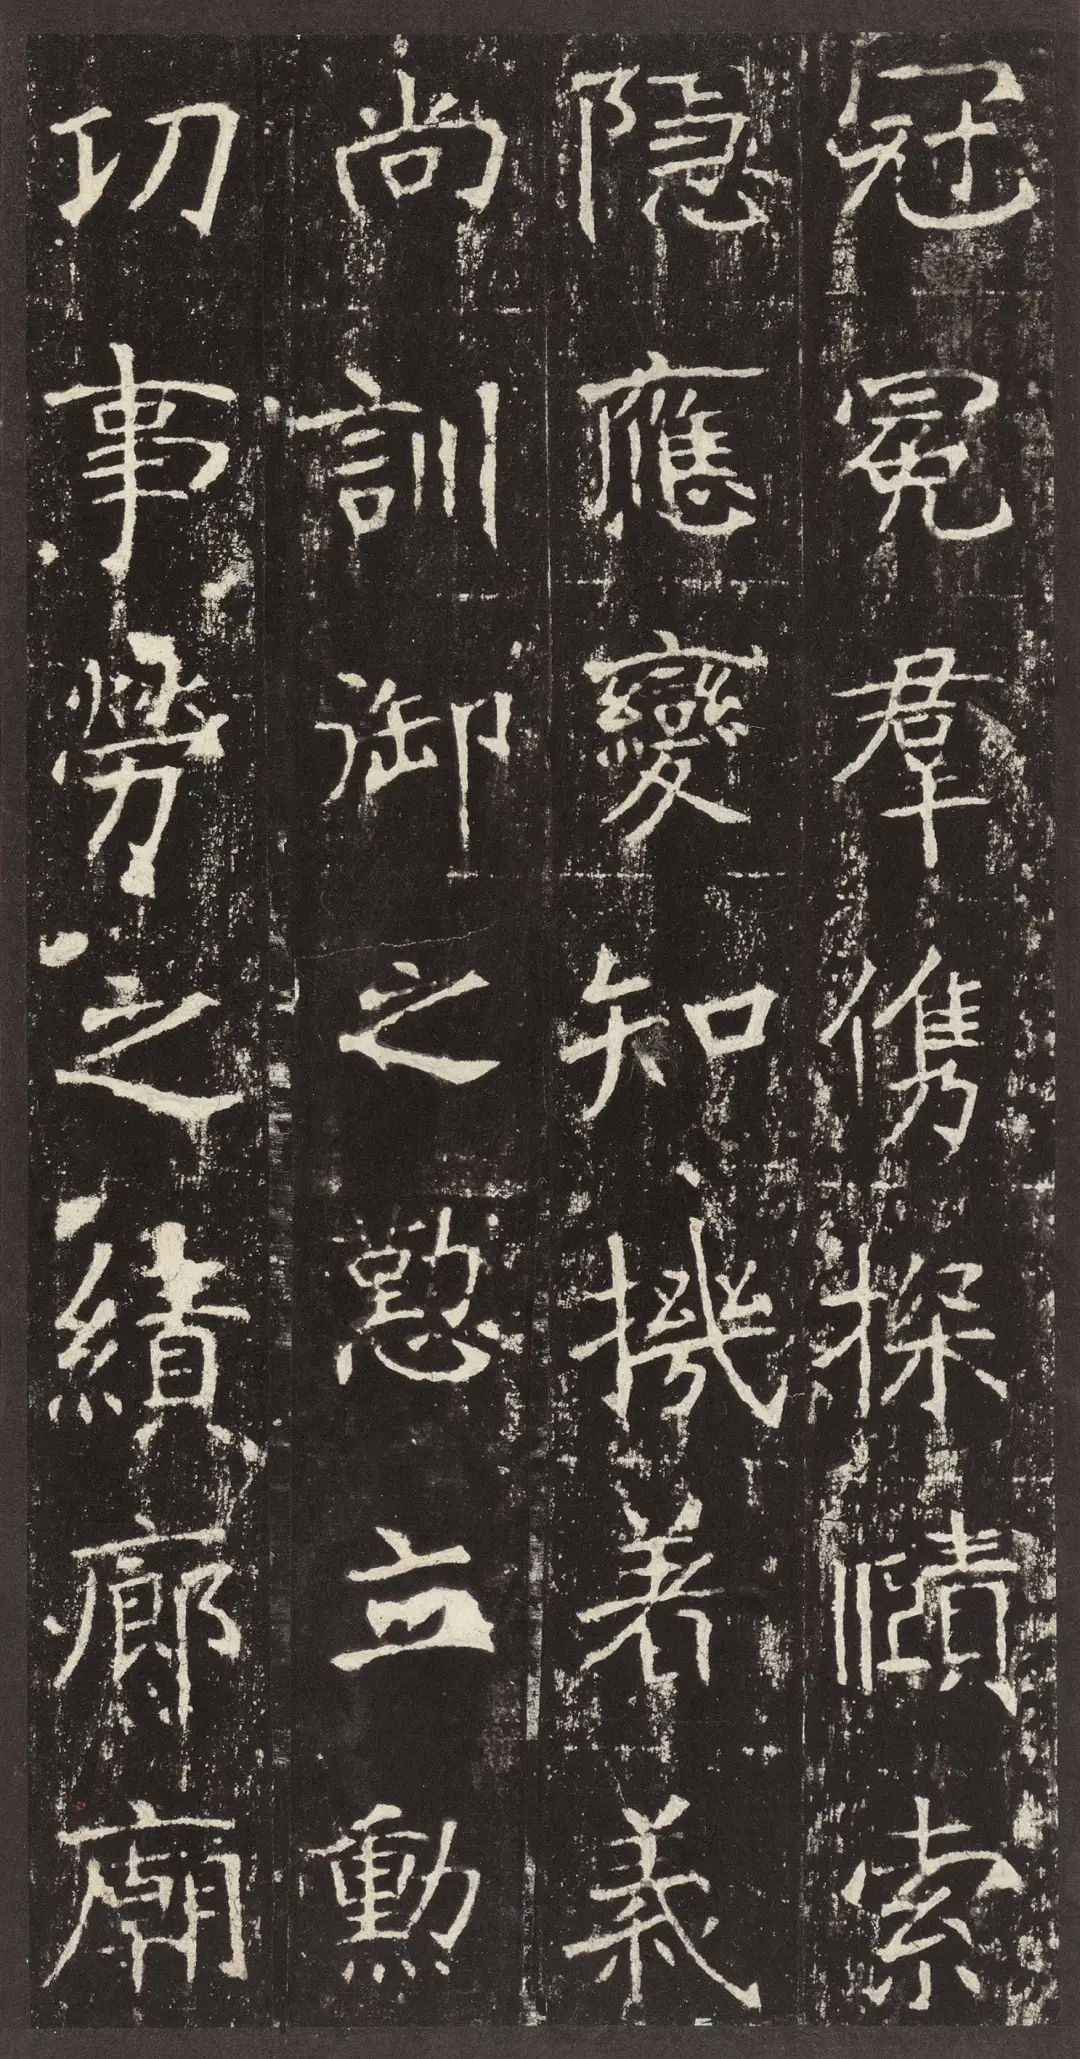 冠冕羣儁探賾索
隐應變知機著義
尚訓御之懃立勳
功事勞之績廊廟